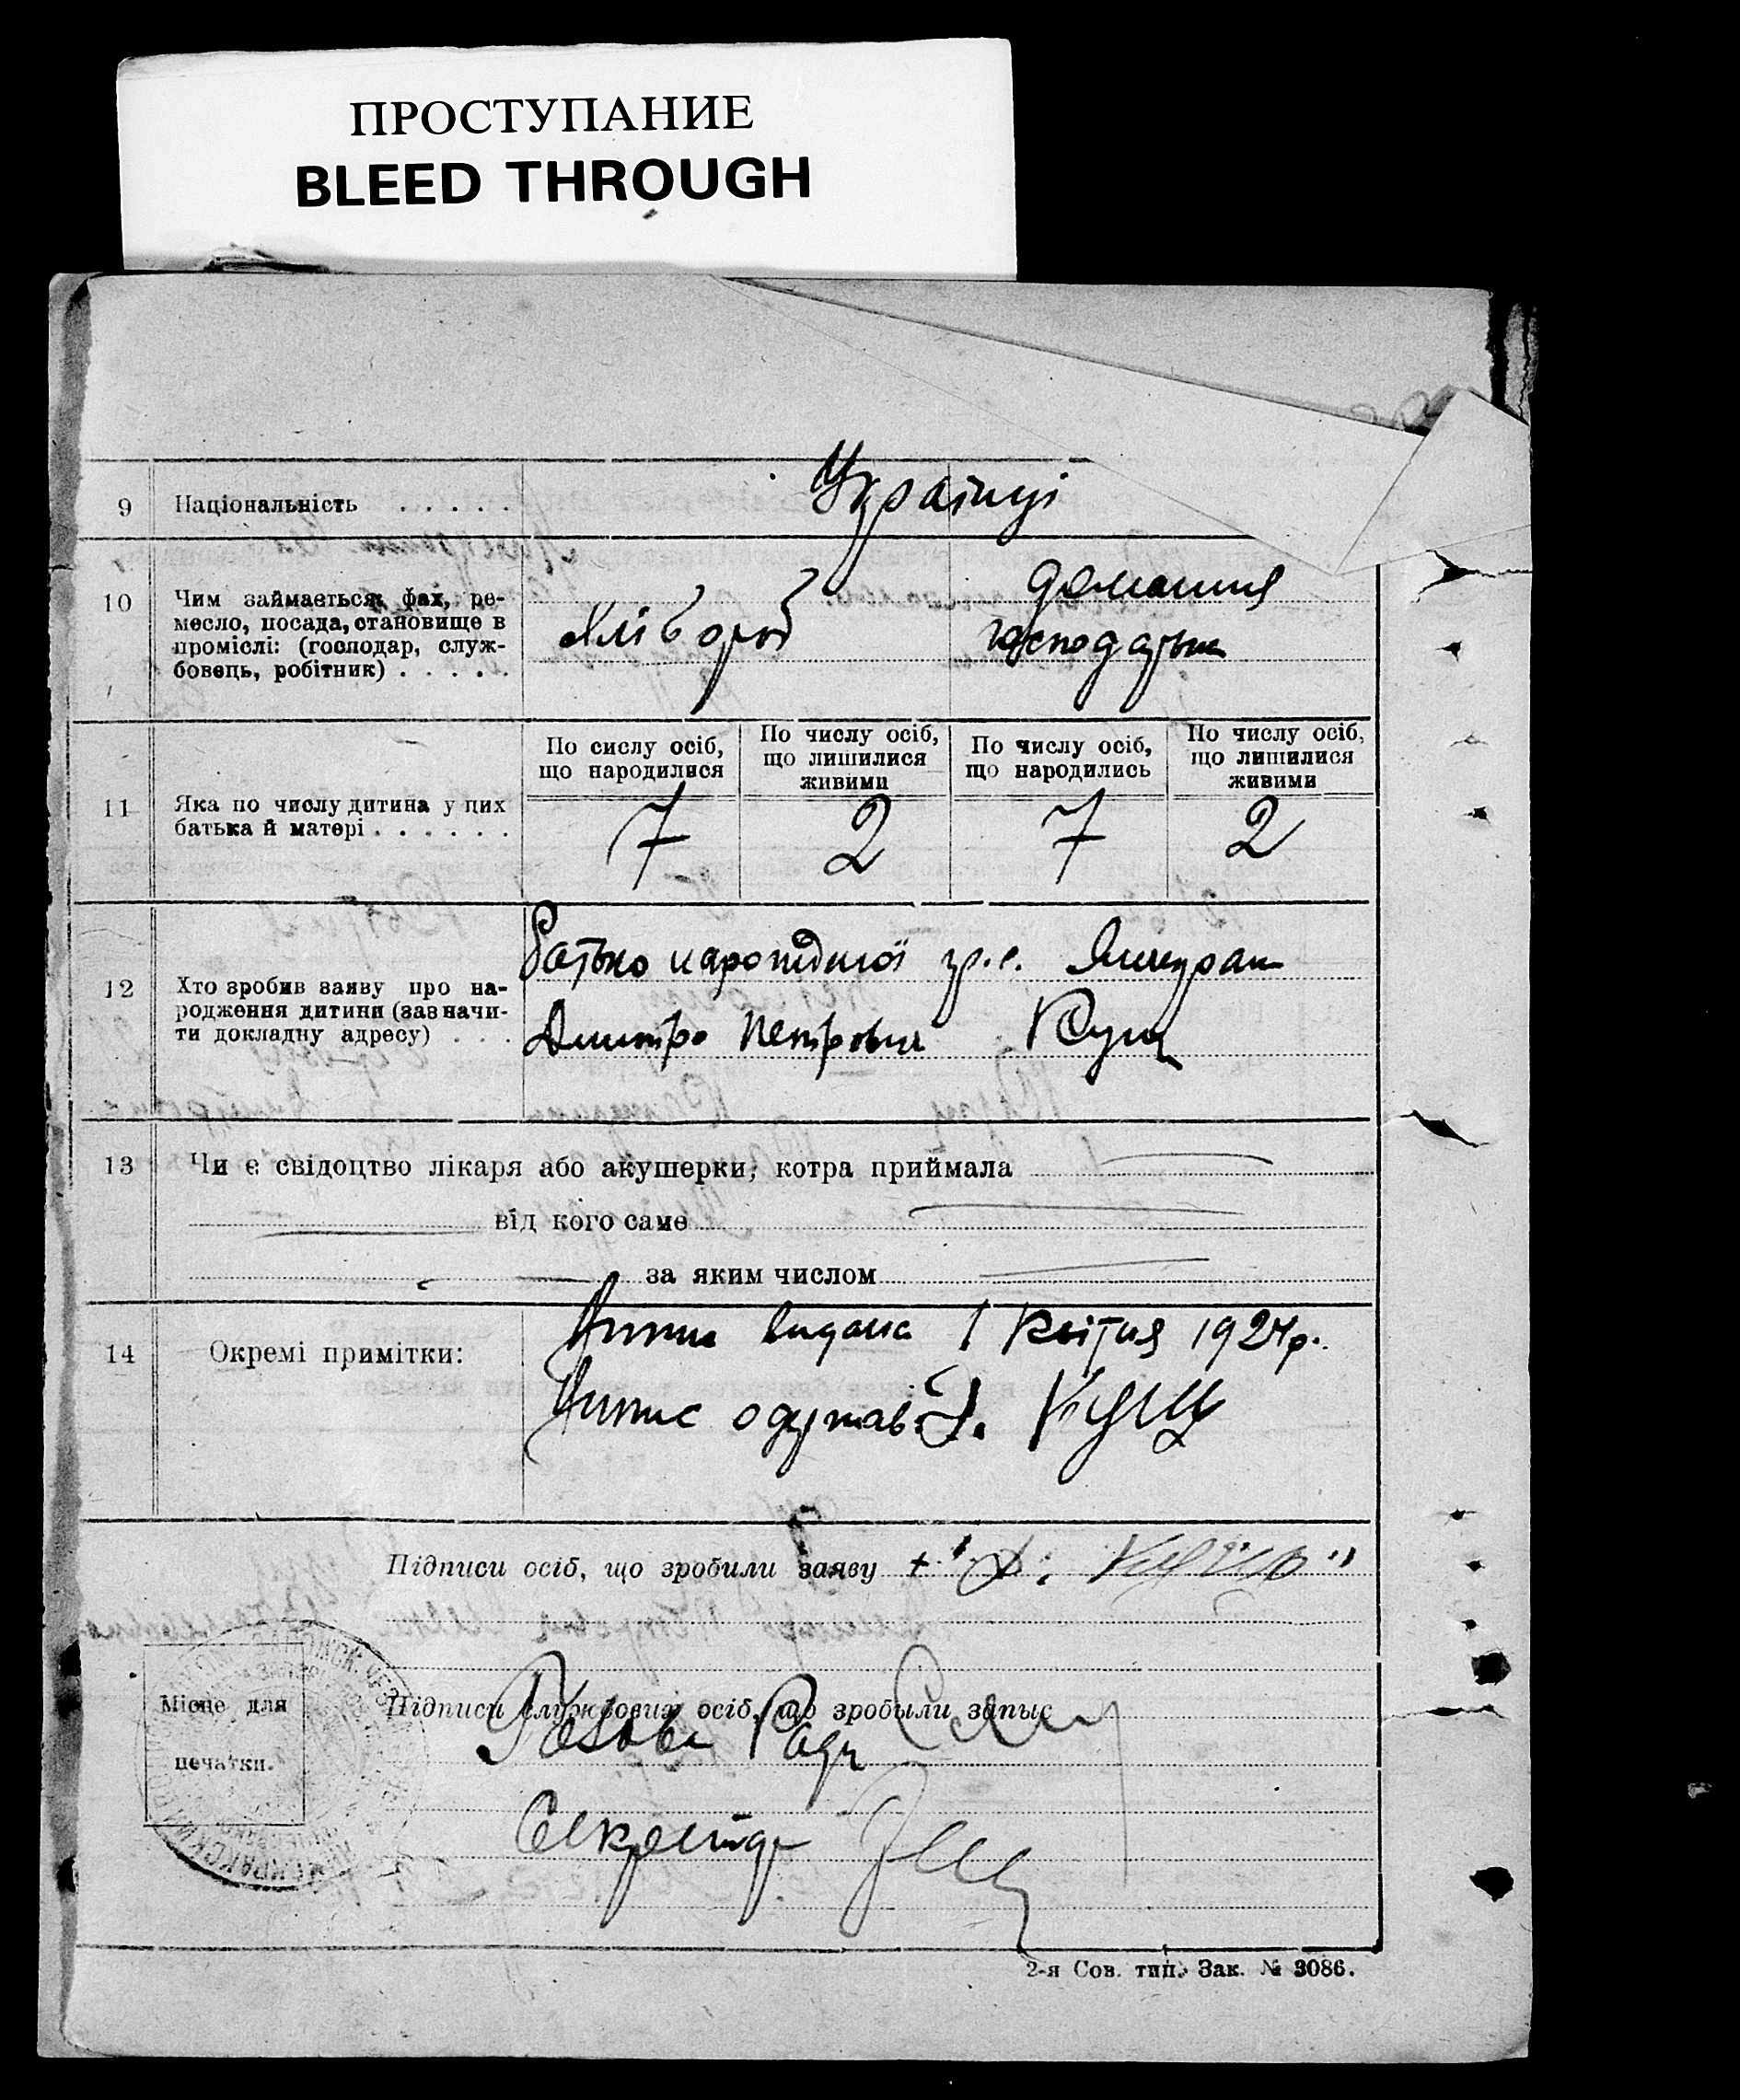 ПРОСТУПАНИЕ
BLEED THROUGH
9 Національність . . . . . Українці
10 Чим займається: фах, ре-
месло, посада, становище в
проміслі: (господар, служ-
бовець, робітник) . . . . .
Хлібороб
домашня
господарька
По сислу осіб,
що народилися
По числу осіб,
що лишилися
живими
По числу осіб,
що народились
По числу осіб,
що лишилися
живими
11 Яка по числу дитина у цих
батька й матері . . . . . .
7 2 7 2
12 Хто зробив заяву про на-
родження дитини (зазначи-
ти докладну адресу) . . .
Батько народженої гр.
Дмитро Петрович Кущ
13 Чи є свідоцтво лікаря або акушерки, котра приймала
від кого саме
за яким числом
14 Окремі примітки:
Випис видана 1 Квітня 1924р.
Випис одержав Д. Кущ
Підписи осіб, що зробили заяву + "Д. Кущ"
Підписи службових осіб, що зробыли запыс
Голова Ради
Місце для
печатки.
Секретар
2-я Сов. тип. Зак. № 3086.